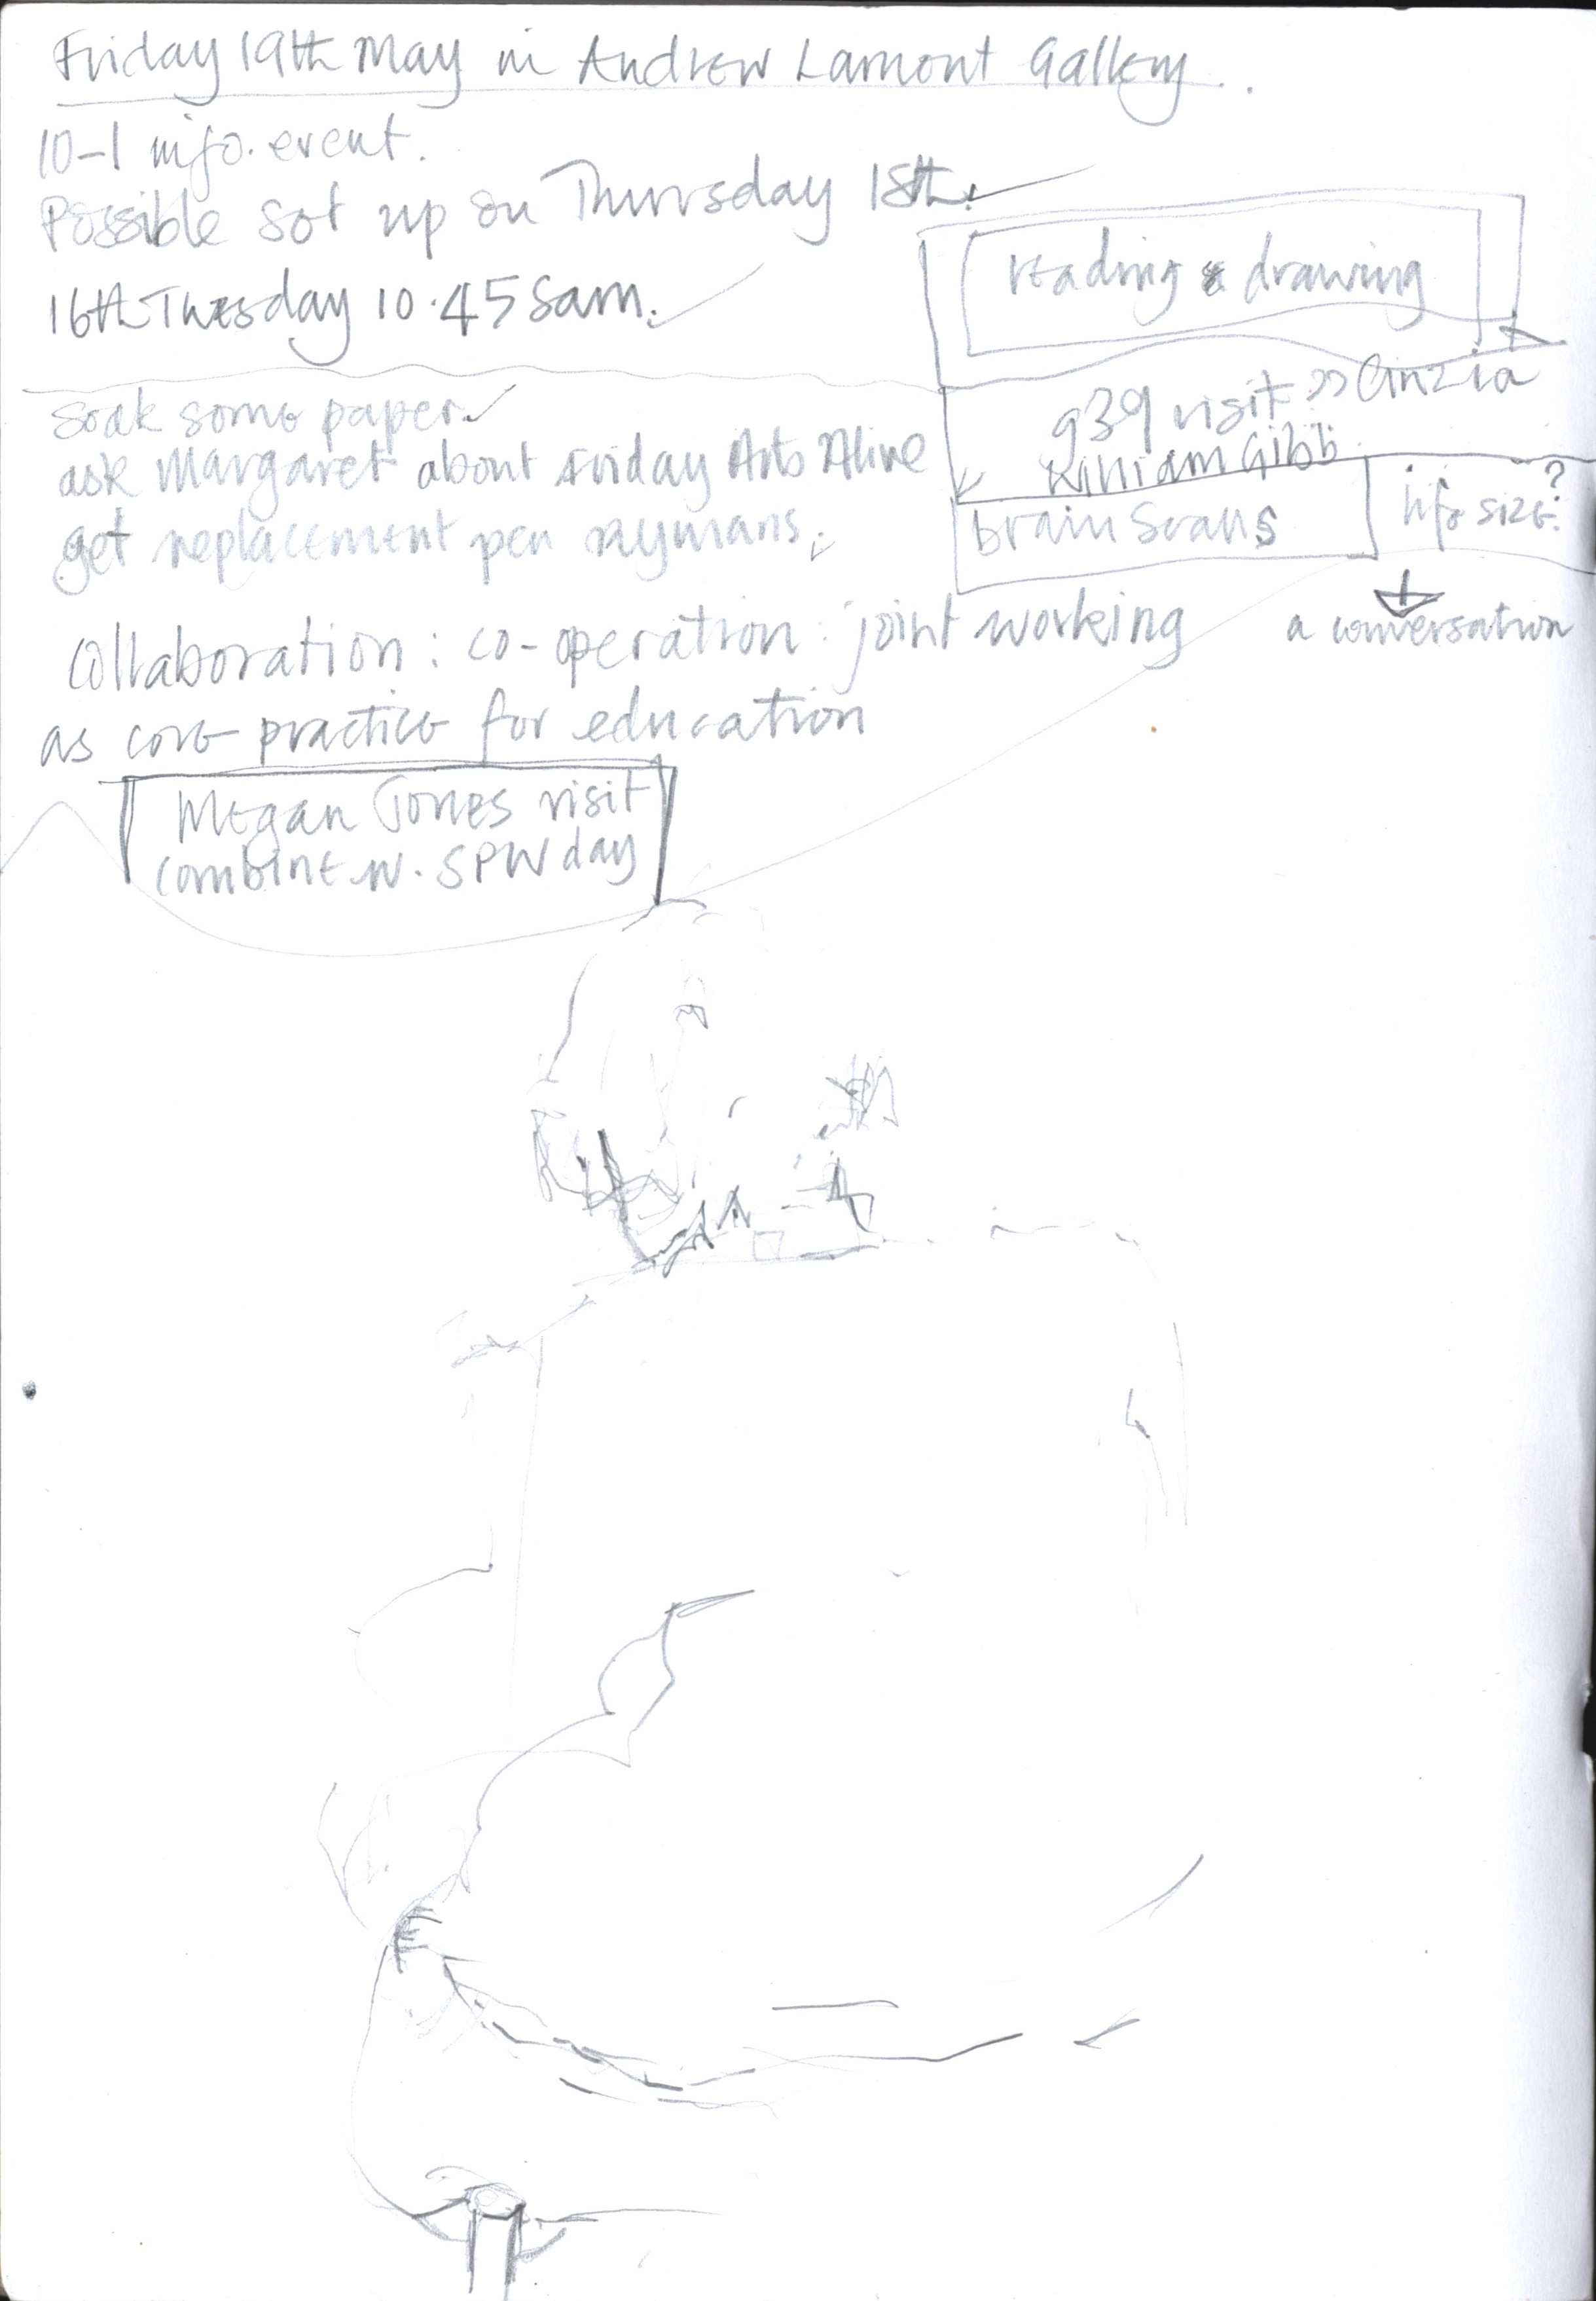 Friday 19th May in Andrew Lamont Gallery.
10-1 info. event.
Possible set up on Thursday 18th.
16th Tuesday 10.45 Sam.
reading & drawing
g39 visit >> Cinzia
William Gibb
brain scans
life size?
a conversation
soak some paper.
ask Margaret about Friday Arts Alive
get replacement pen rymans.
collaboration : co-operation : joint working
as core practice for education
Megan Jones visit
combine w. SPW day